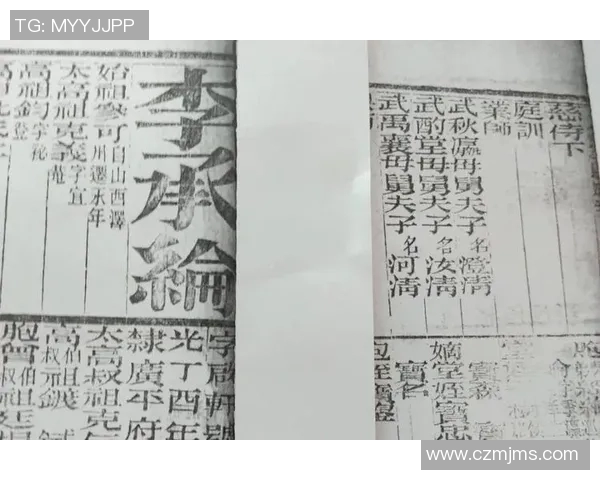 TG: MYYJJPP
慈侍下
庭訓
業師
武秋瀛母舅夫子名澄清
武酌堂母舅夫子名汝清
武禹襄母舅夫子名河清
嫡堂姪寶忠
寶名
寶森
李承綸
始祖參可自山西澤
州遷永年
太高祖克義字宜
菴
高祖鈞字秘
登
字啟軒號
光丁酉年
隸廣平府
太高叔祖克
高伯祖鏚
叔
www.czmjms.com